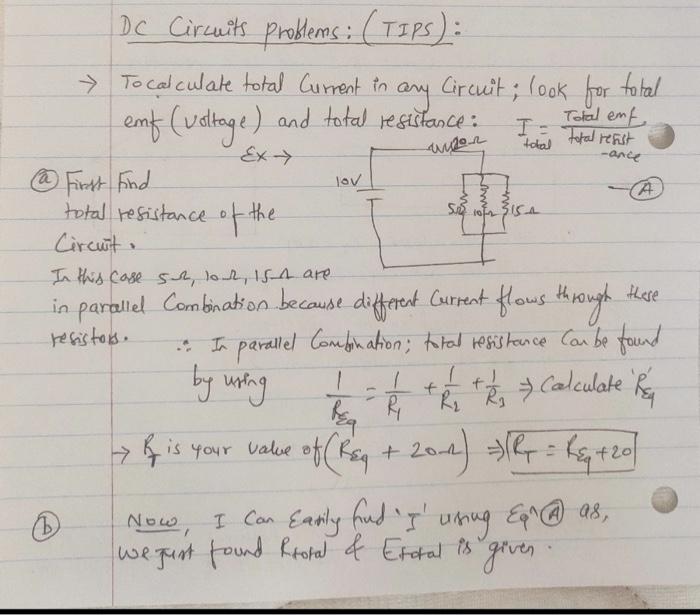 DC Circuits problems: (TIPS):
→ To calculate total Current in any Circuit; look for total
emf (voltage) and total resistance: I total = Total emf / total resist-ance
Ex →
20Ω
— Ⓐ
ⓐ First find
10V
total resistance of the
5Ω 10Ω 15Ω
Circuit.
In this case 5Ω, 10Ω, 15Ω are
in parallel Combination because different Current flows through these
resistors. ∴ In parallel Combination; total resistance can be found
by using 1/REq = 1/R1 + 1/R2 + 1/R3 ⇒ Calculate 'REq'
→ RT is your value of (REq + 20Ω) ⇒ RT = REq + 20
ⓑ Now, I can Easily find 'I' using Eqn Ⓐ as,
we just found Rtotal & Etotal is given.